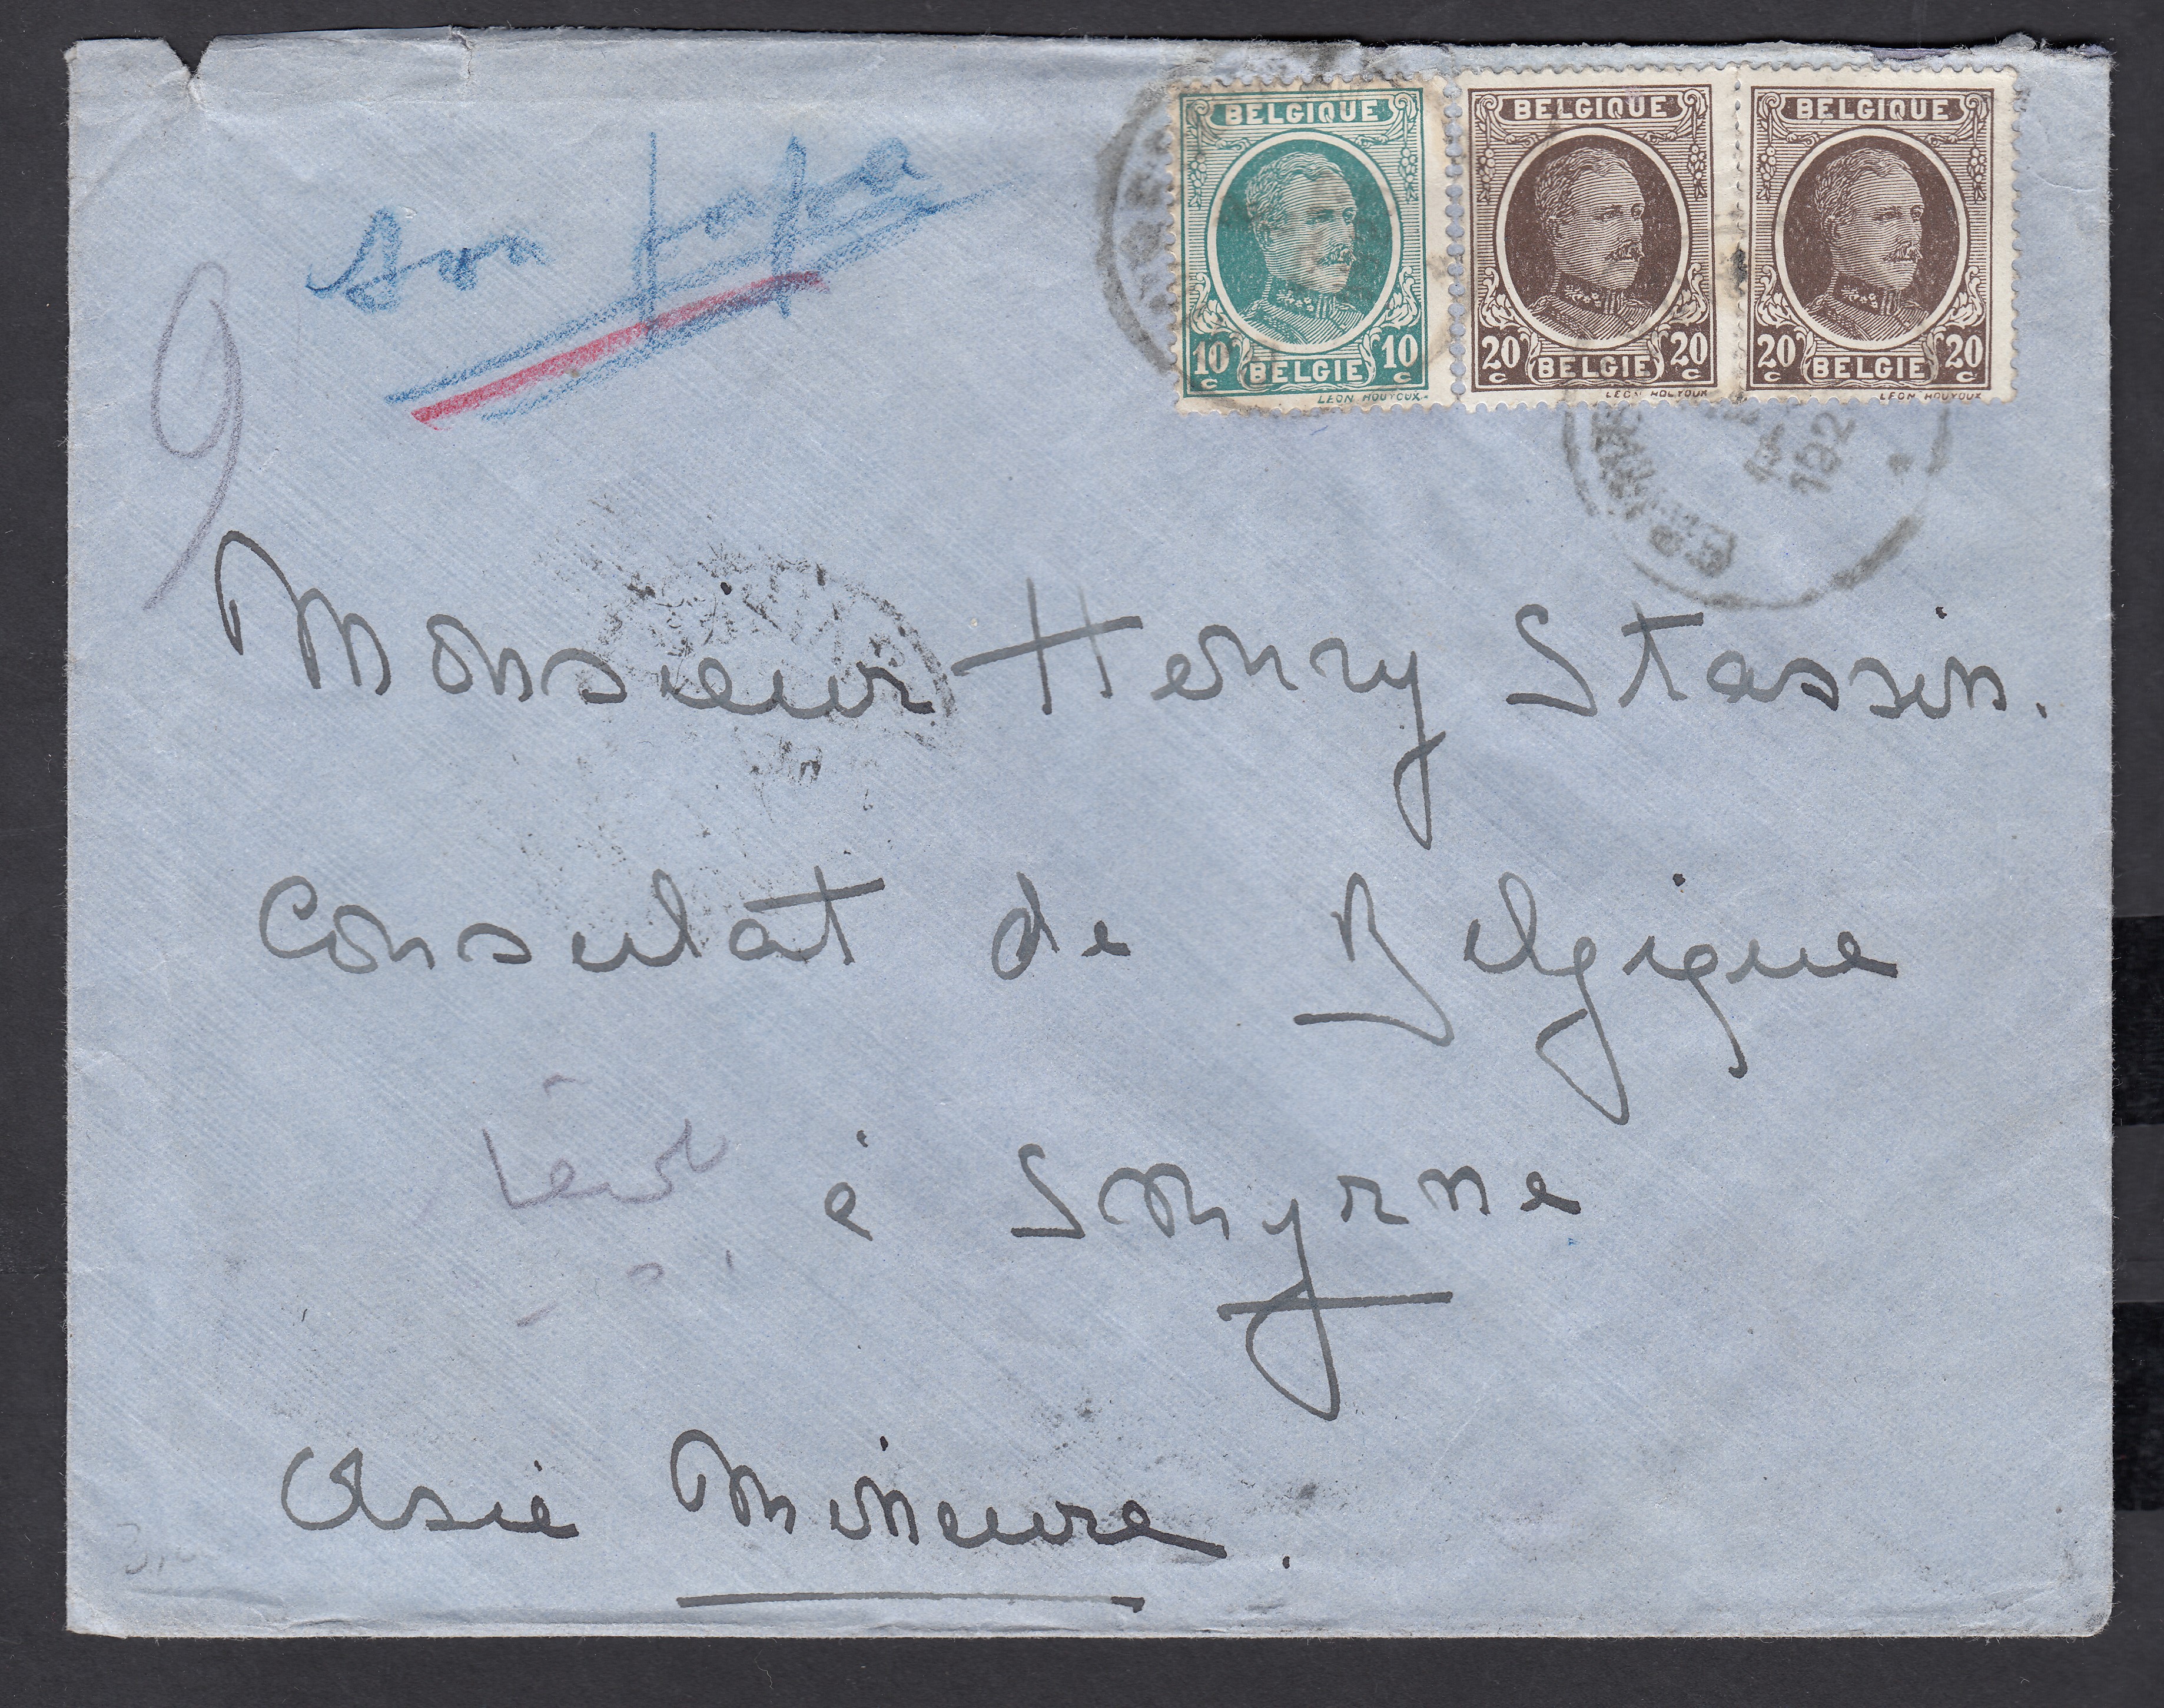 son papa
BELGIQUE BELGIQUE BELGIQUE
10 c BELGIE 10 c 20 c BELGIE 20 c 20 c BELGIE 20 c
LEON HOUYOUX. LEON HOUYOUX LEON HOUYOUX
192
9
Monsieur Henry Stassin.
Consulat de Belgique
à Smyrne
Asie Mineure.